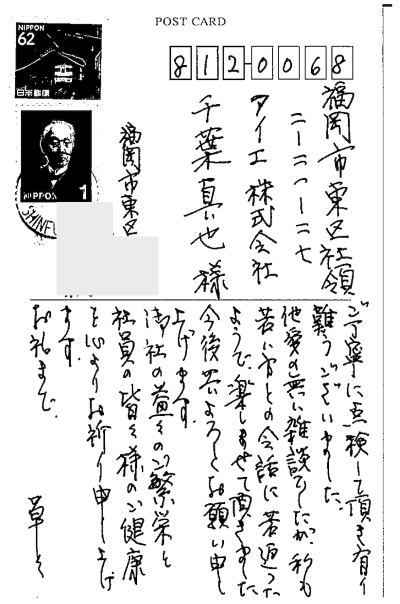 POST CARD
NIPPON
62
日本郵便
NIPPON 1
812-0068
福岡市東区社領
二ー二一ー二七
アイエ株式会社
千葉真也様
福岡市東区
ご丁寧に点検して頂き有り
難うございました。
他愛の無い雑談でしたが、私も
若い方との会話に若返った
ようで、楽しませて頂きました。
今後共よろしくお願い申し
上げます。
御社の益々のご繁栄と
社員の皆々様のご健康
を心よりお祈り申し上げ
ます。
お礼まで。
草々